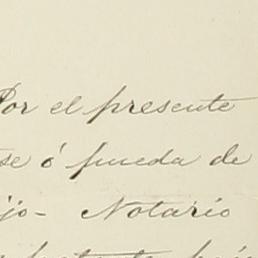 Por el presente
se ó pueda de
jo- Notario